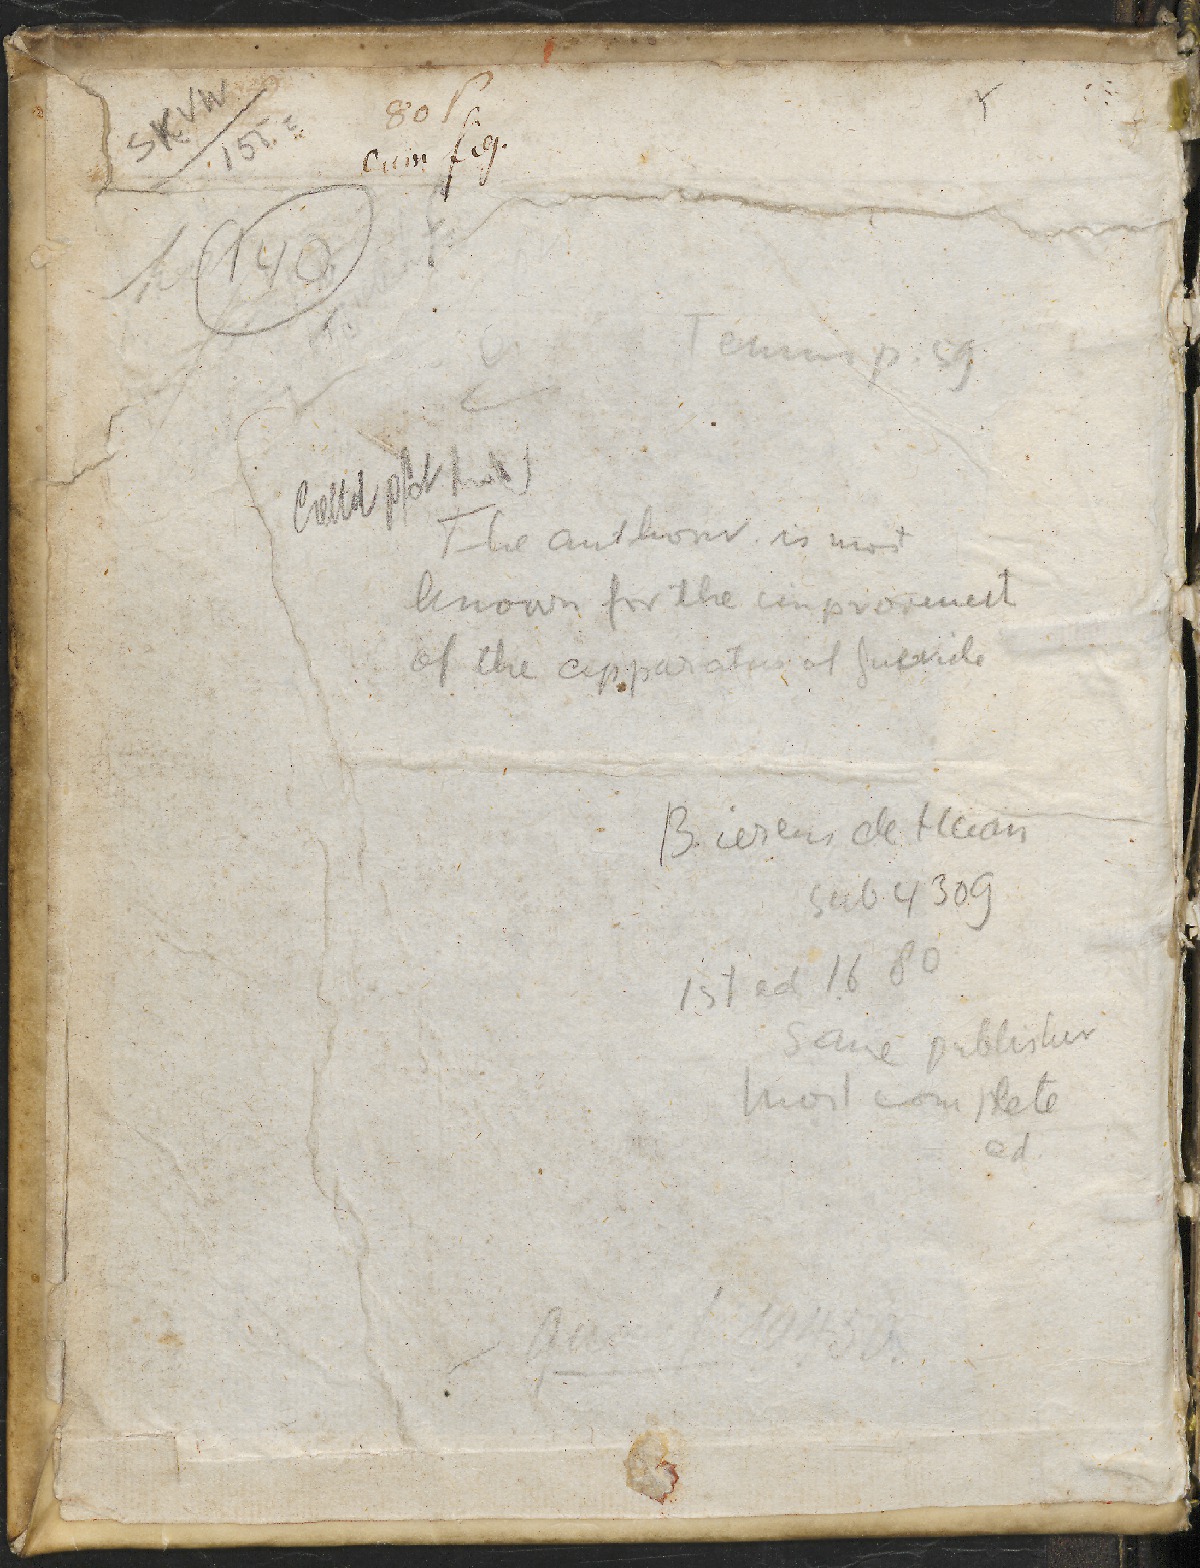 SKVW
155.
80 f
cum fig.
140
p. 59
The authour is most
known for the improvement
of the apparatus of Guericke
Bierens de Haan
sub 4309
1st ed 1680
Same publisher
most complete
ed